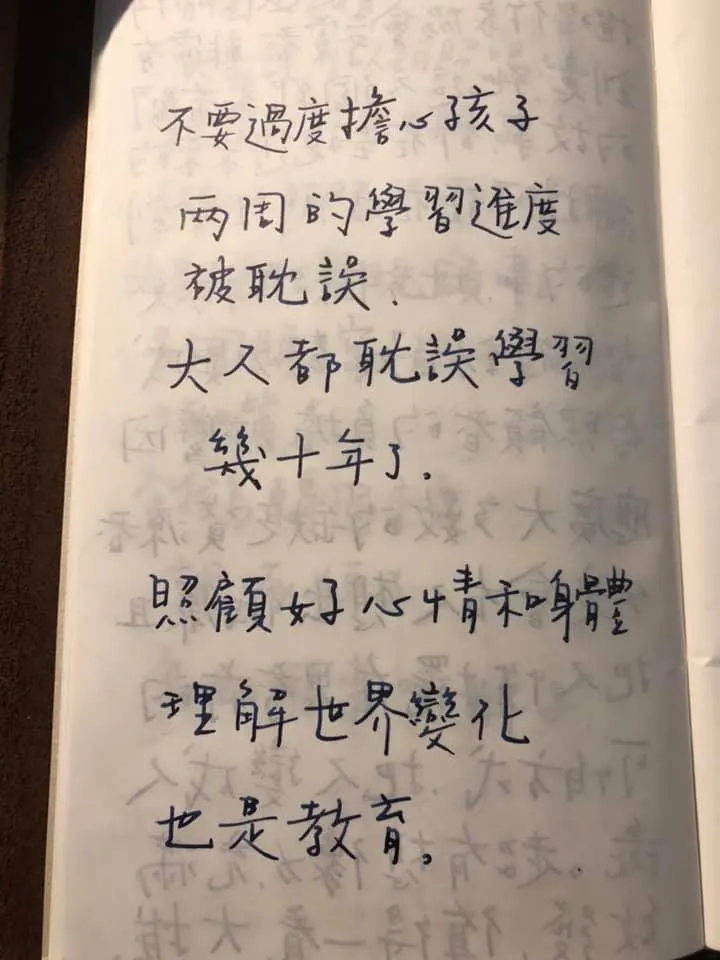 不要過度擔心孩子
两周的學習進度
被耽誤.
大人都耽誤學習
幾十年了。
照顧好心情和身體
理解世界變化
也是教育。